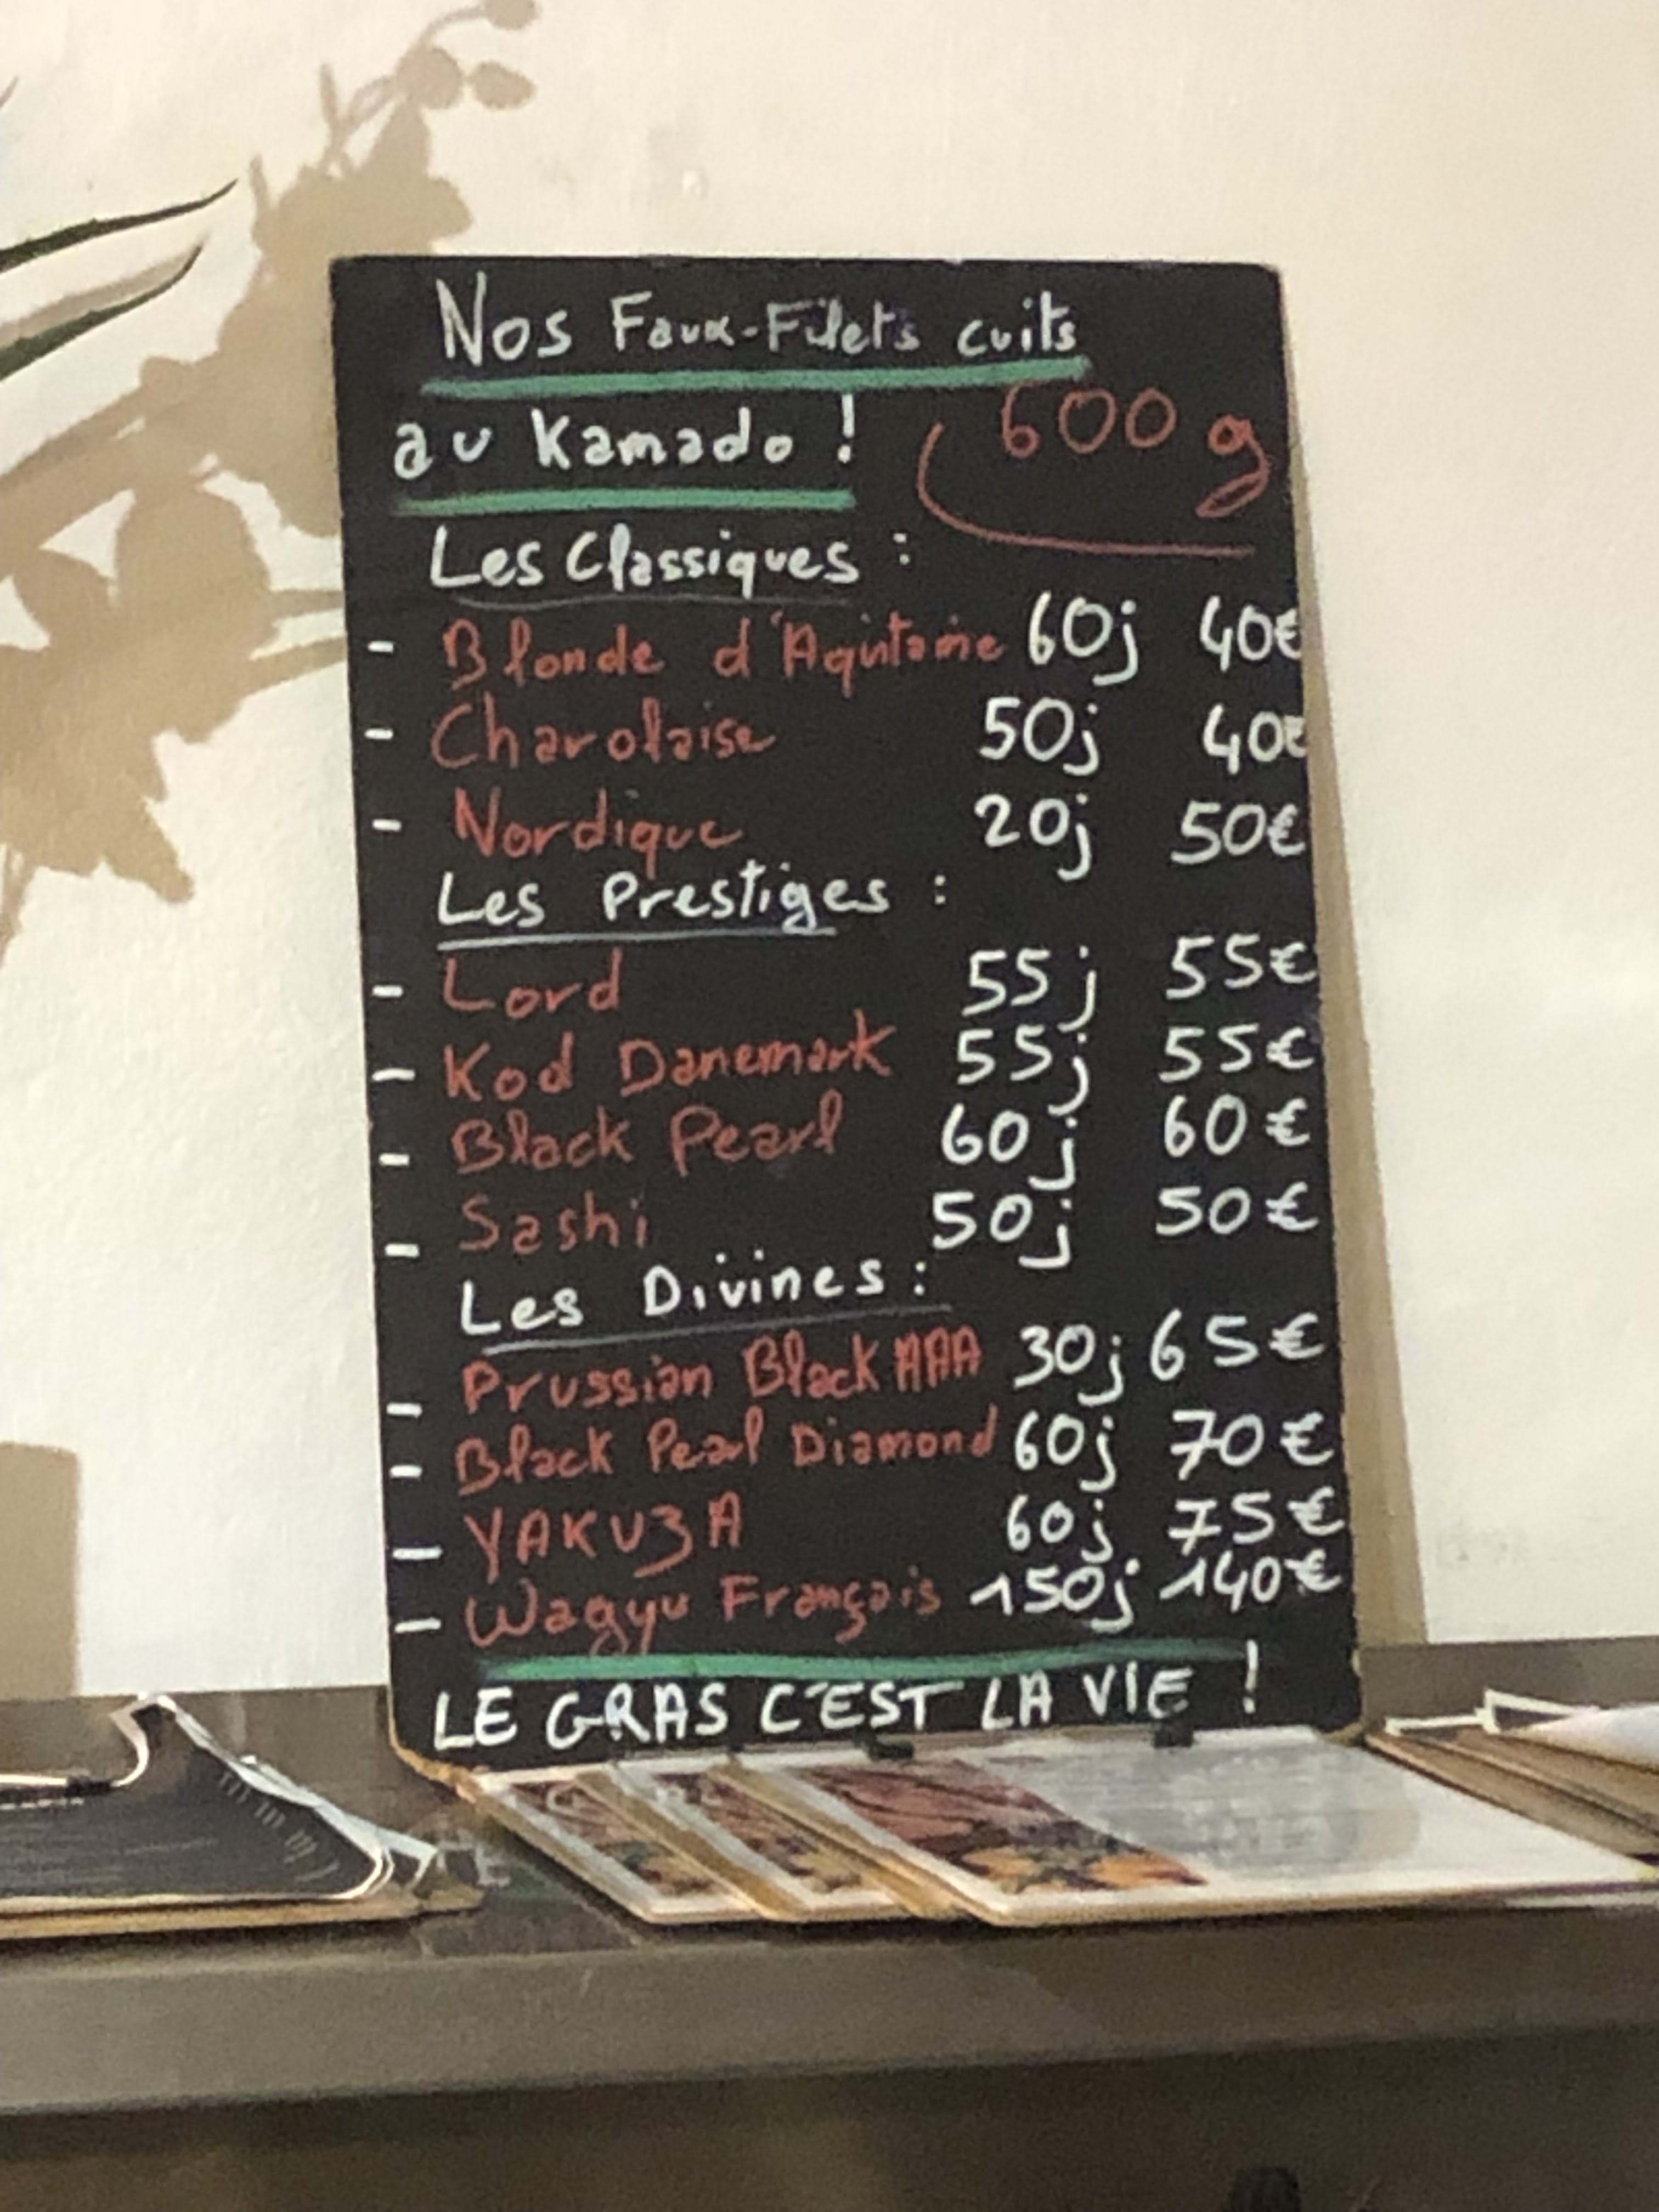 Nos Faux-Filets cuits
au Kamado ! 600 g
Les Classiques :
- Blonde d'Aquitaine 60j 40€
- Charolaise 50j 40€
- Nordique 20j 50€
Les Prestiges :
- Lord 55j 55€
- Kod Danemark 55j 55€
- Black Pearl 60j 60€
- Sashi 50j 50€
Les Divines :
- Prussian Black AAA 30j 65€
- Black Pearl Diamond 60j 70€
- YAKUZA 60j 75€
- Wagyu Français 150j 140€
LE GRAS C'EST LA VIE !